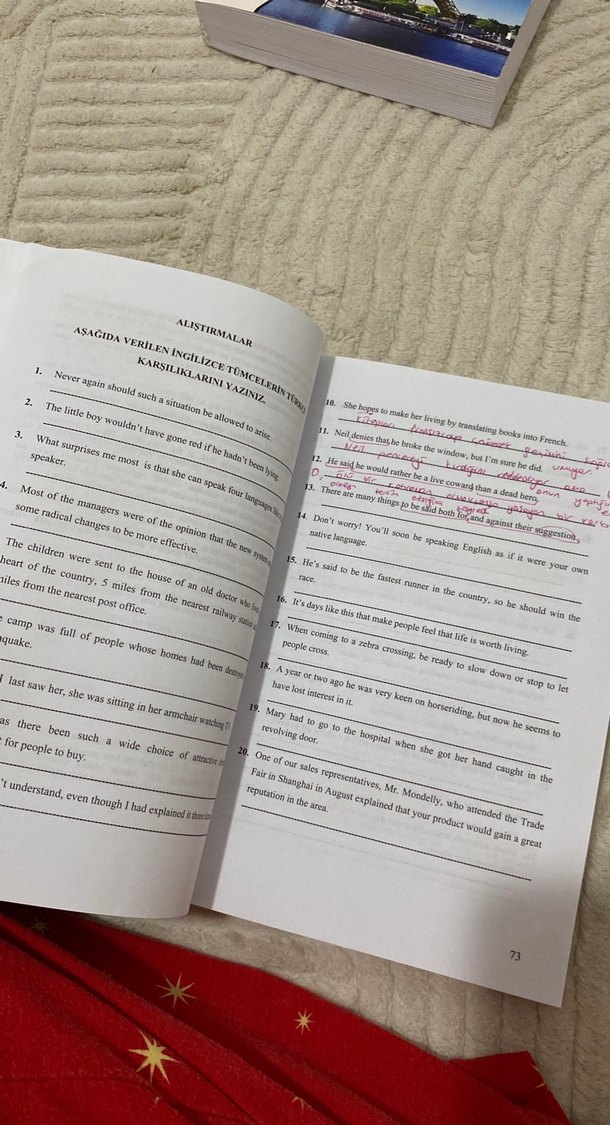 ALIŞTIRMALAR
AŞAĞIDA VERİLEN İNGİLİZCE TÜMCELERİN
KARŞILIKLARINI YAZINIZ.
1. Never again should such a situation be allowed to arise.
2. The little boy wouldn't have gone red if he hadn't been lying.
3. What surprises me most is that she can speak four languages
speaker.
4. Most of the managers were of the opinion that the new system
some radical changes to be more effective.
The children were sent to the house of an old doctor who
heart of the country, 5 miles from the nearest railway station
miles from the nearest post office.
camp was full of people whose homes had been
last saw her, she was sitting in her armchair watching
there been such a wide choice of attractive
for people to buy.
understand, even though I had explained it three
10. She hopes to make her living by translating books into French.
kitapları
11. Neil denies that he broke the window, but I'm sure he did.
Neil pencereyi kırdığını
12. He said he would rather be a live coward than a dead hero.
ölü bir kahraman olmaktansa yaşayan bir
olmayı tercih ettiğini
13. There are many things to be said both for and against their suggestion.
14. Don't worry! You'll soon be speaking English as if it were your own
native language.
15. He's said to be the fastest runner in the country, so he should win the
race.
16. It's days like this that make people feel that life is worth living.
17. When coming to a zebra crossing, be ready to slow down or stop to let
people cross.
18. A year or two ago he was very keen on horseriding, but now he seems to
have lost interest in it.
19. Mary had to go to the hospital when she got her hand caught in the
revolving door.
20. One of our sales representatives, Mr. Mondelly, who attended the Trade
Fair in Shanghai in August explained that your product would gain a great
reputation in the area.
73